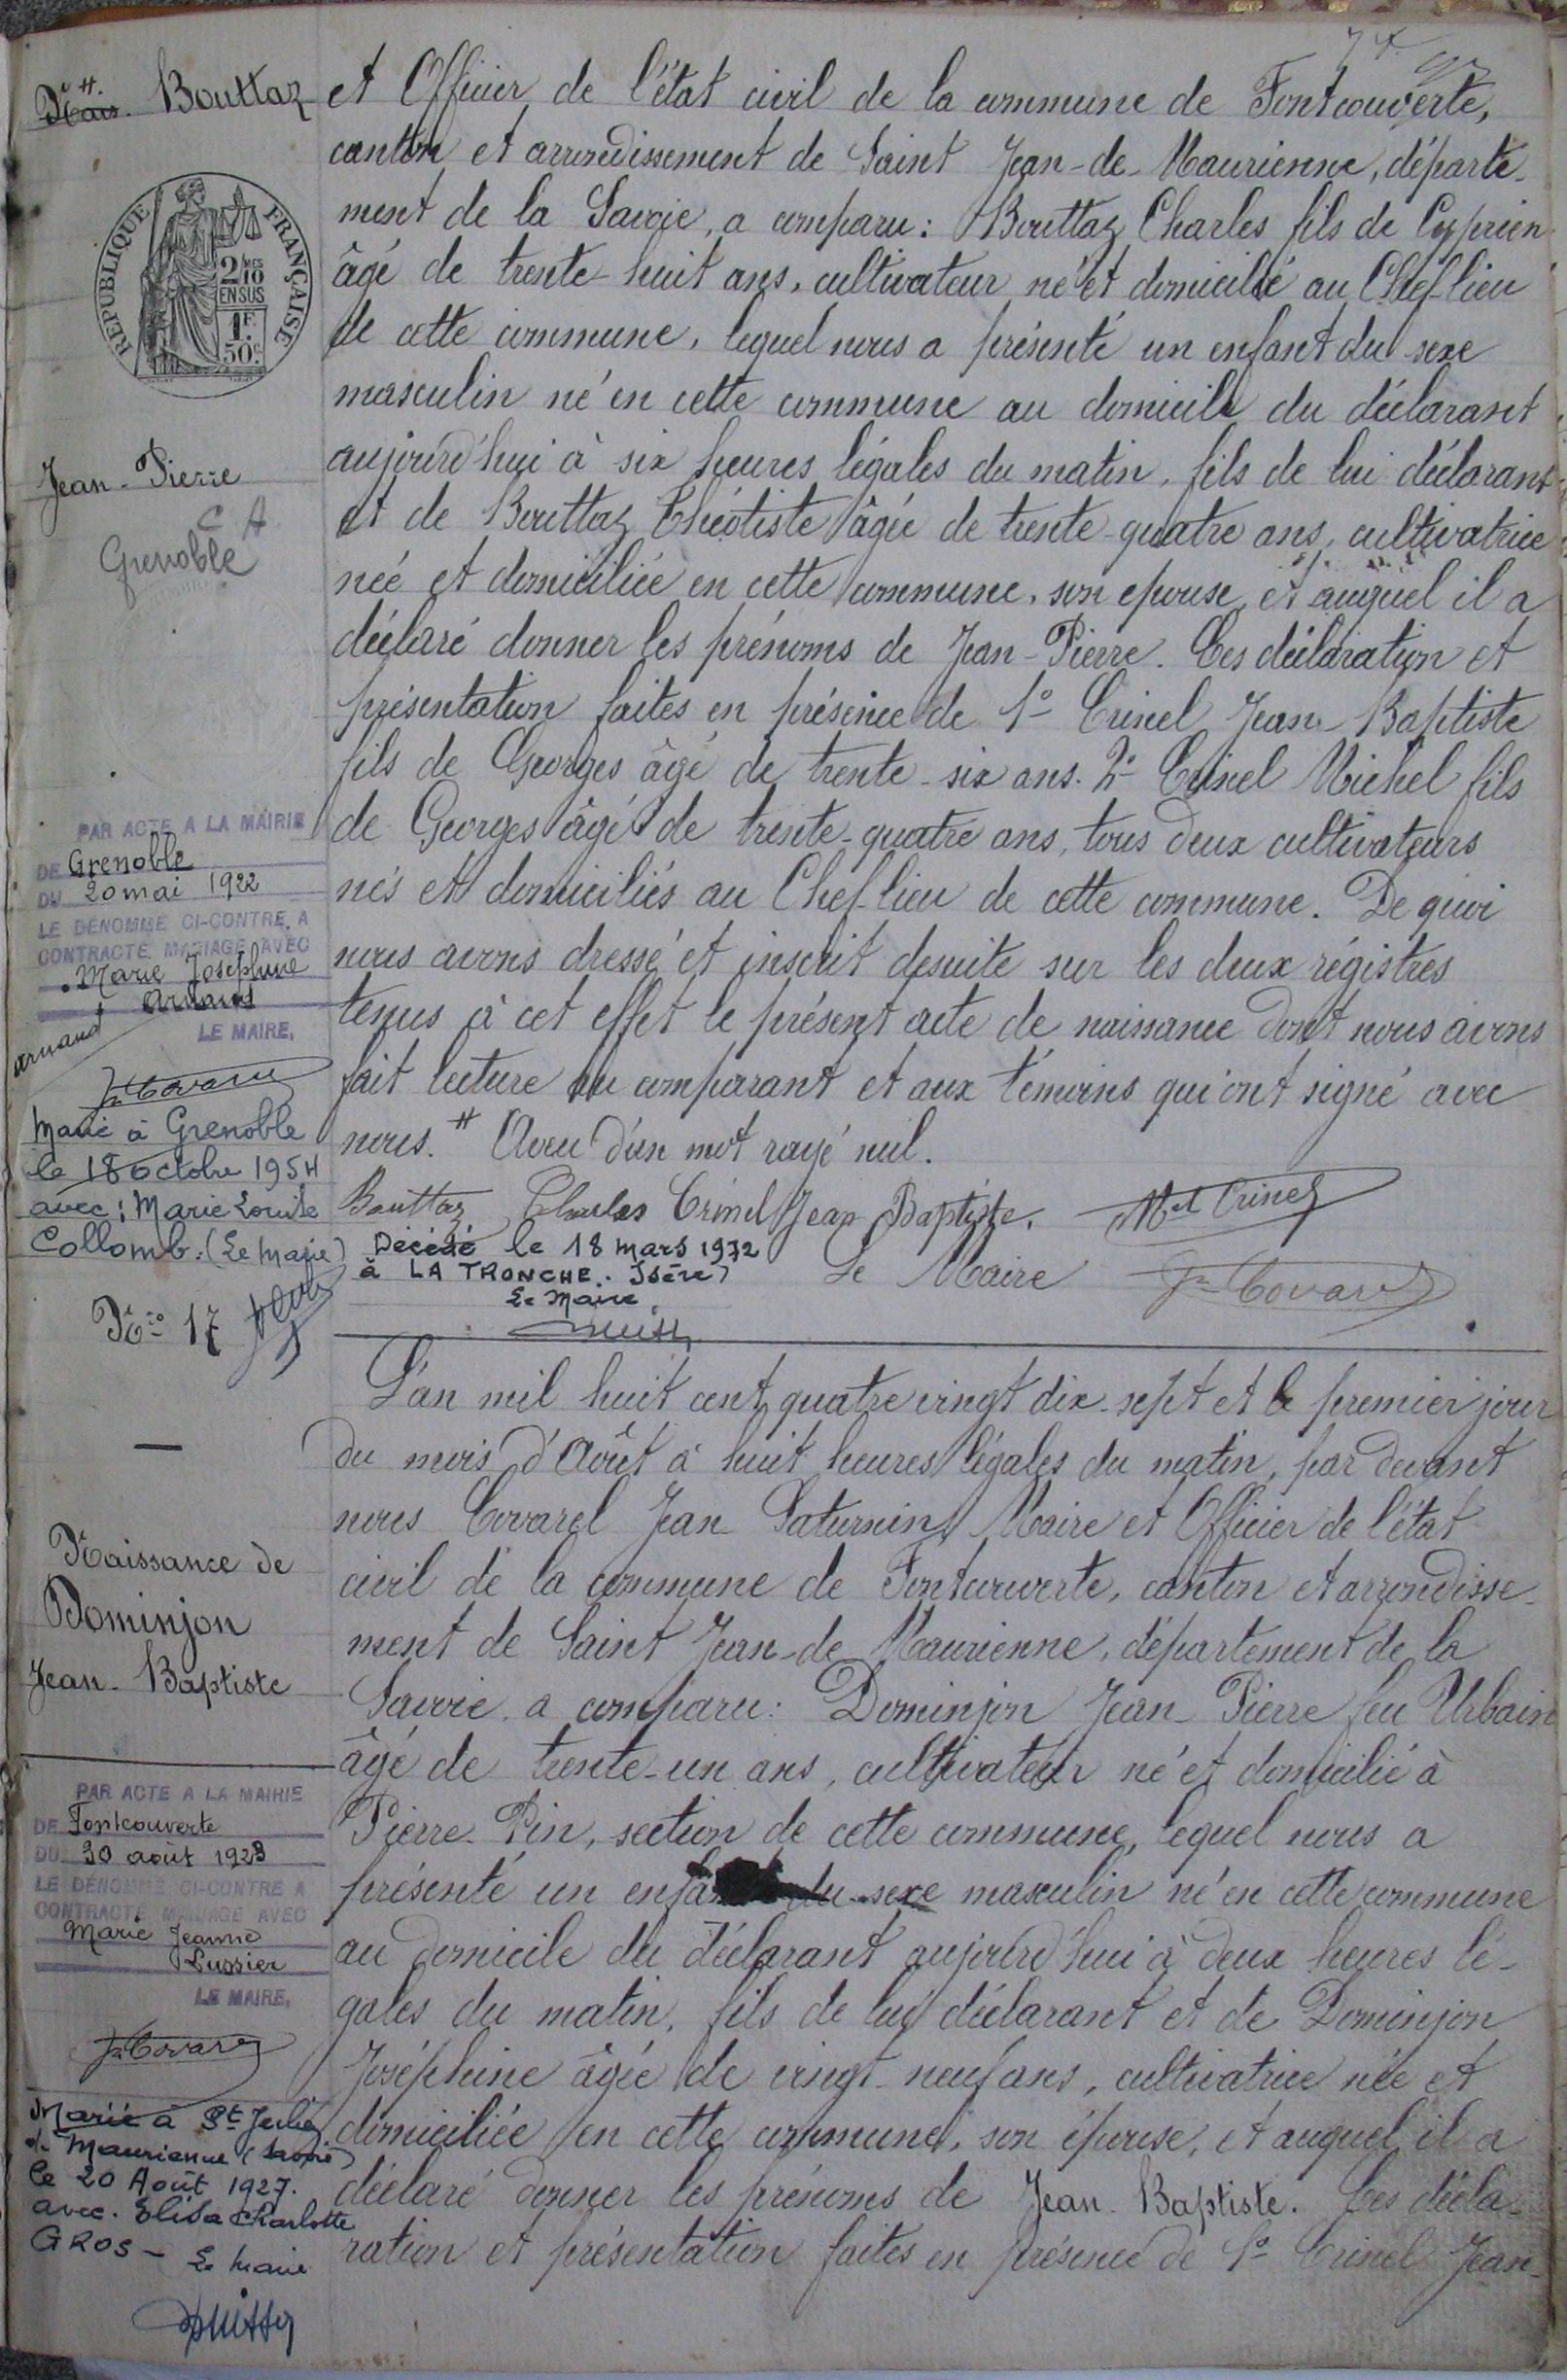 Bouttaz
RÉPUBLIQUE FRANÇAISE
2/10 MES
EN SUS
1F.
50c
Jean-Pierre
C A
Grenoble
PAR ACTE A LA MAIRIE
DE Grenoble
DU 20 mai 1922
LE DÉNOMMÉ CI-CONTRE A
CONTRACTÉ MARIAGE AVEC
Marie Joséphine
Arnaud
Arnaud
LE MAIRE,
Marié à Grenoble
le 18 octobre 1954
avec : Marie Louise
Collomb. (Le Maire)
et Officier de l'état civil de la commune de Fontcouverte,
canton et arrondissement de Saint Jean-de-Maurienne, départe-
ment de la Savoie, a comparu : Bouttaz Charles fils de Cyprien
âgé de trente-huit ans, cultivateur né et domicilié au Chef-lieu
de cette commune, lequel nous a présenté un enfant du sexe
masculin né en cette commune au domicile du déclarant
aujourd'hui à six heures légales du matin, fils de lui déclarant
et de Bouttaz Théotiste âgée de trente-quatre ans, cultivatrice
née et domiciliée en cette commune, son epouse, et auquel il a
déclaré donner les prénoms de Jean-Pierre. Ces déclaration et
présentation faites en présence de 1º Crinel Jean-Baptiste
fils de Georges âgé de trente-six ans. 2º Crinel Michel fils
de Georges âgé de trente-quatre ans, tous deux cultivateurs
nés et domiciliés au Chef-lieu de cette commune. De quoi
nous avons dressé et inscrit desuite sur les deux régistres
tenus à cet effet le présent acte de naissance dont nous avons
fait lecture au comparant et aux témoins qui ont signé avec
nous. # Aveu d'un mot rayé nul.
Bouttaz Charles Crinel Jean Baptiste. Mel Crinel
Décédé le 18 mars 1972
à LA TRONCHE. Isère)
Le Maire
Le Maire Jn Covarel
Nro 17
Naissance de
Dominjon
Jean-Baptiste
PAR ACTE A LA MAIRIE
DE Fontcouverte
DU 30 août 1923
LE DÉNOMMÉ CI-CONTRE A
CONTRACTÉ MARIAGE AVEC
Marie Jeanne
Lussier
LE MAIRE,
Jn Covarel
Marié à St Julien
de Maurienne (Savoie)
le 20 Août 1927.
avec. Elisa Charlotte
GROS - Le Maire
L'an mil huit cent quatre vingt dix-sept et le premier jour
du mois d'Août à huit heures légales du matin, par devant
nous Covarel Jean Saturnin, Maire et Officier de l'état
civil de la commune de Fontcouverte, canton et arrondisse-
ment de Saint Jean-de Maurienne, département de la
Savoie, a comparu : Dominjon Jean-Pierre feu Urbain
âgé de trente-un ans, cultivateur né et domicilié à
Pierre-Pin, section de cette commune, lequel nous a
présenté un enfant du sexe masculin né en cette commune
au domicile du déclarant aujourd'hui à deux heures lé-
gales du matin, fils de lui déclarant et de Dominjon
Joséphine âgée de vingt-neuf ans, cultivatrice née et
domiciliée en cette commune, son épouse, et auquel il a
déclaré donner les prénoms de Jean-Baptiste. Ces décla-
ration et présentation faites en présence de 1º Crinel Jean-